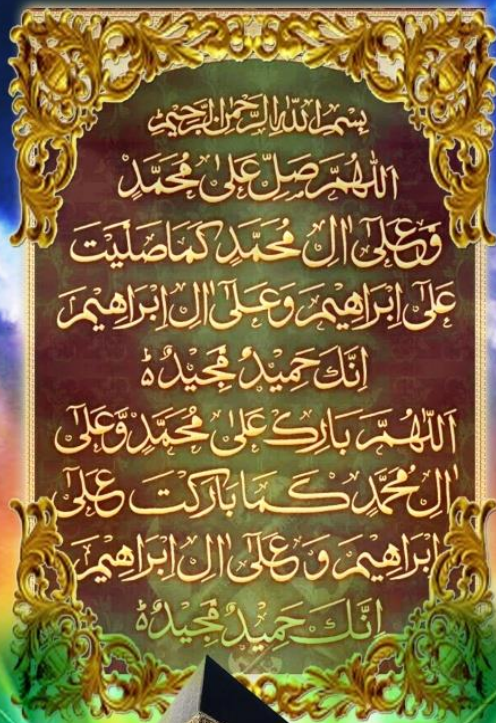 بِسْمِ اللّٰهِ الرَّحْمٰنِ الرَّحِيْمِ
اَللّٰهُمَّ صَلِّ عَلٰى مُحَمَّدٍ
وَّعَلٰٓى اٰلِ مُحَمَّدٍ كَمَا صَلَّيْتَ
عَلٰٓى اِبْرَاهِيْمَ وَعَلٰٓى اٰلِ اِبْرَاهِيْمَ
اِنَّكَ حَمِيْدٌ مَّجِيْدٌ ؕ
اَللّٰهُمَّ بَارِكْ عَلٰى مُحَمَّدٍ وَّعَلٰٓى
اٰلِ مُحَمَّدٍ كَمَا بَارَكْتَ عَلٰٓى
اِبْرَاهِيْمَ وَ عَلٰٓى اٰلِ اِبْرَاهِيْمَ
اِنَّكَ حَمِيْدٌ مَّجِيْدٌ ؕ